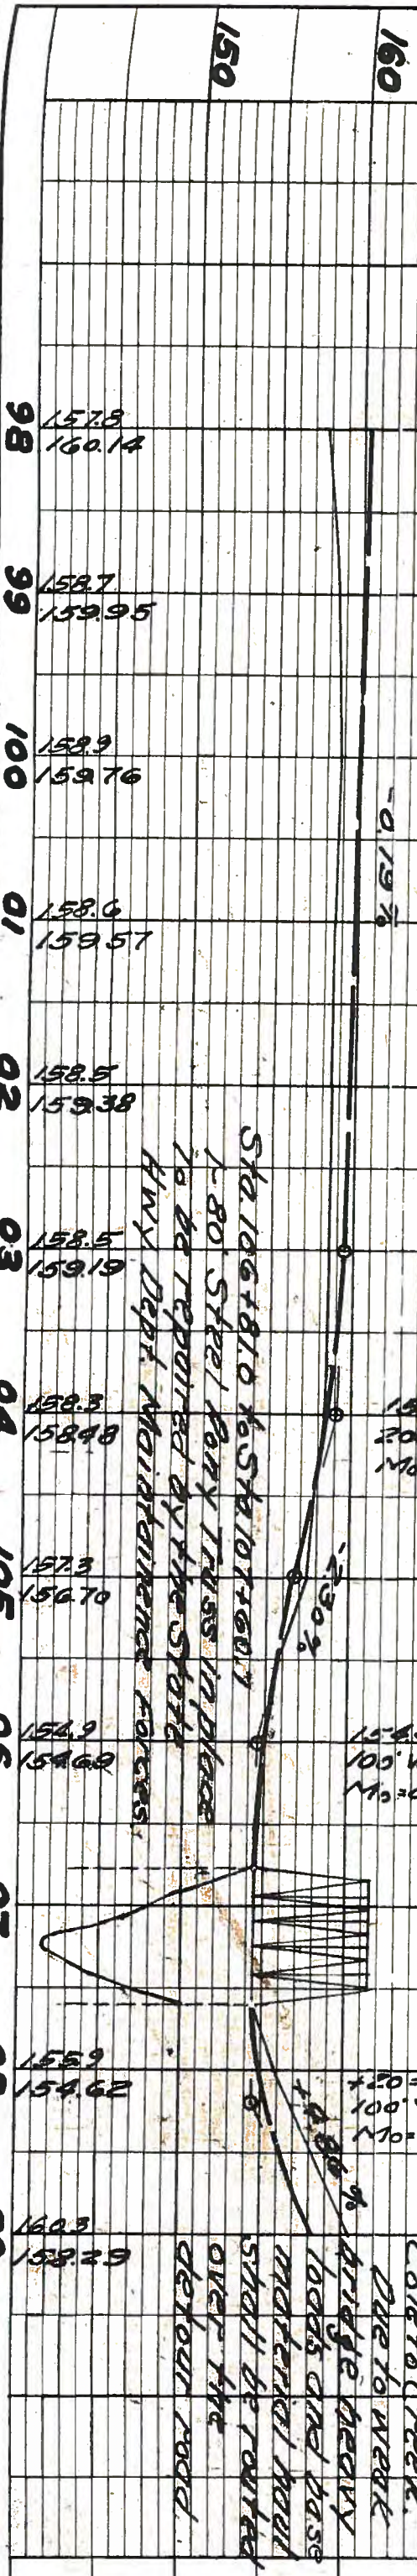 150
160
98
157.8
160.14
99
158.7
159.95
100
158.9
159.76
01
158.6
159.57
02
158.5
159.38
03
158.5
159.19
04
158.3
158.48
105
157.3
156.70
06
154.9
154.69
07
155.9
154.62
160.3
158.29
-0.19%
-2.30%
Sta. 106+81.0 to Sta. 107+60.7
1-80' Steel Pony Truss in place
To be repaired by the State
Hwy. Dept. Maintainence Forces.
100'
+20=
100'
Due to weak
bridge heavy
loads and base
material haul
shall be routed
over the
detour road.